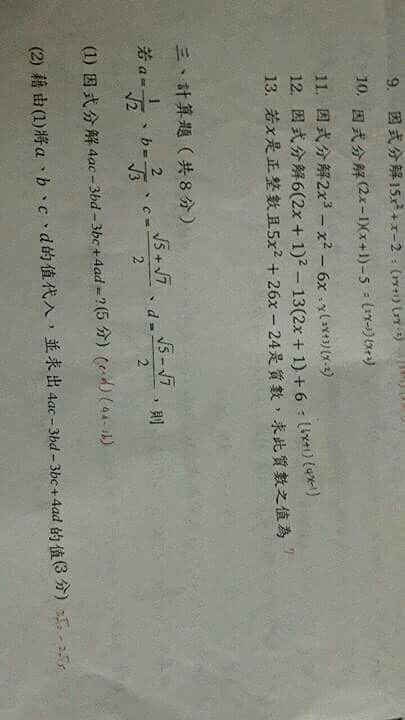 9. 因式分解15x²+x-2:(5x+2)(3x-1)
10. 因式分解(2x-1)(x+1)-5:(2x-3)(x+2)
11. 因式分解2x³-x²-6x:x(2x+3)(x-2)
12. 因式分解6(2x+1)²-13(2x+1)+6:(6x+1)(4x-1)
13. 若x是正整數且5x²+26x-24是質數,求此質數之值為 7
三、計算題(共8分)
若a=1/√2、b=2/√3、c=(√5+√7)/2、d=(√5-√7)/2,則
(1) 因式分解4ac-3bd-3bc+4ad=?(5分) (c+d)(4a-3b)
(2) 藉由(1)將a、b、c、d的值代入,並求出4ac-3bd-3bc+4ad的值(3分)